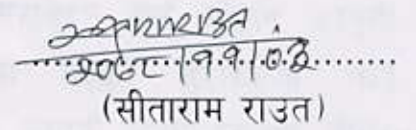 २०७८।११।०३
(सीताराम राउत)